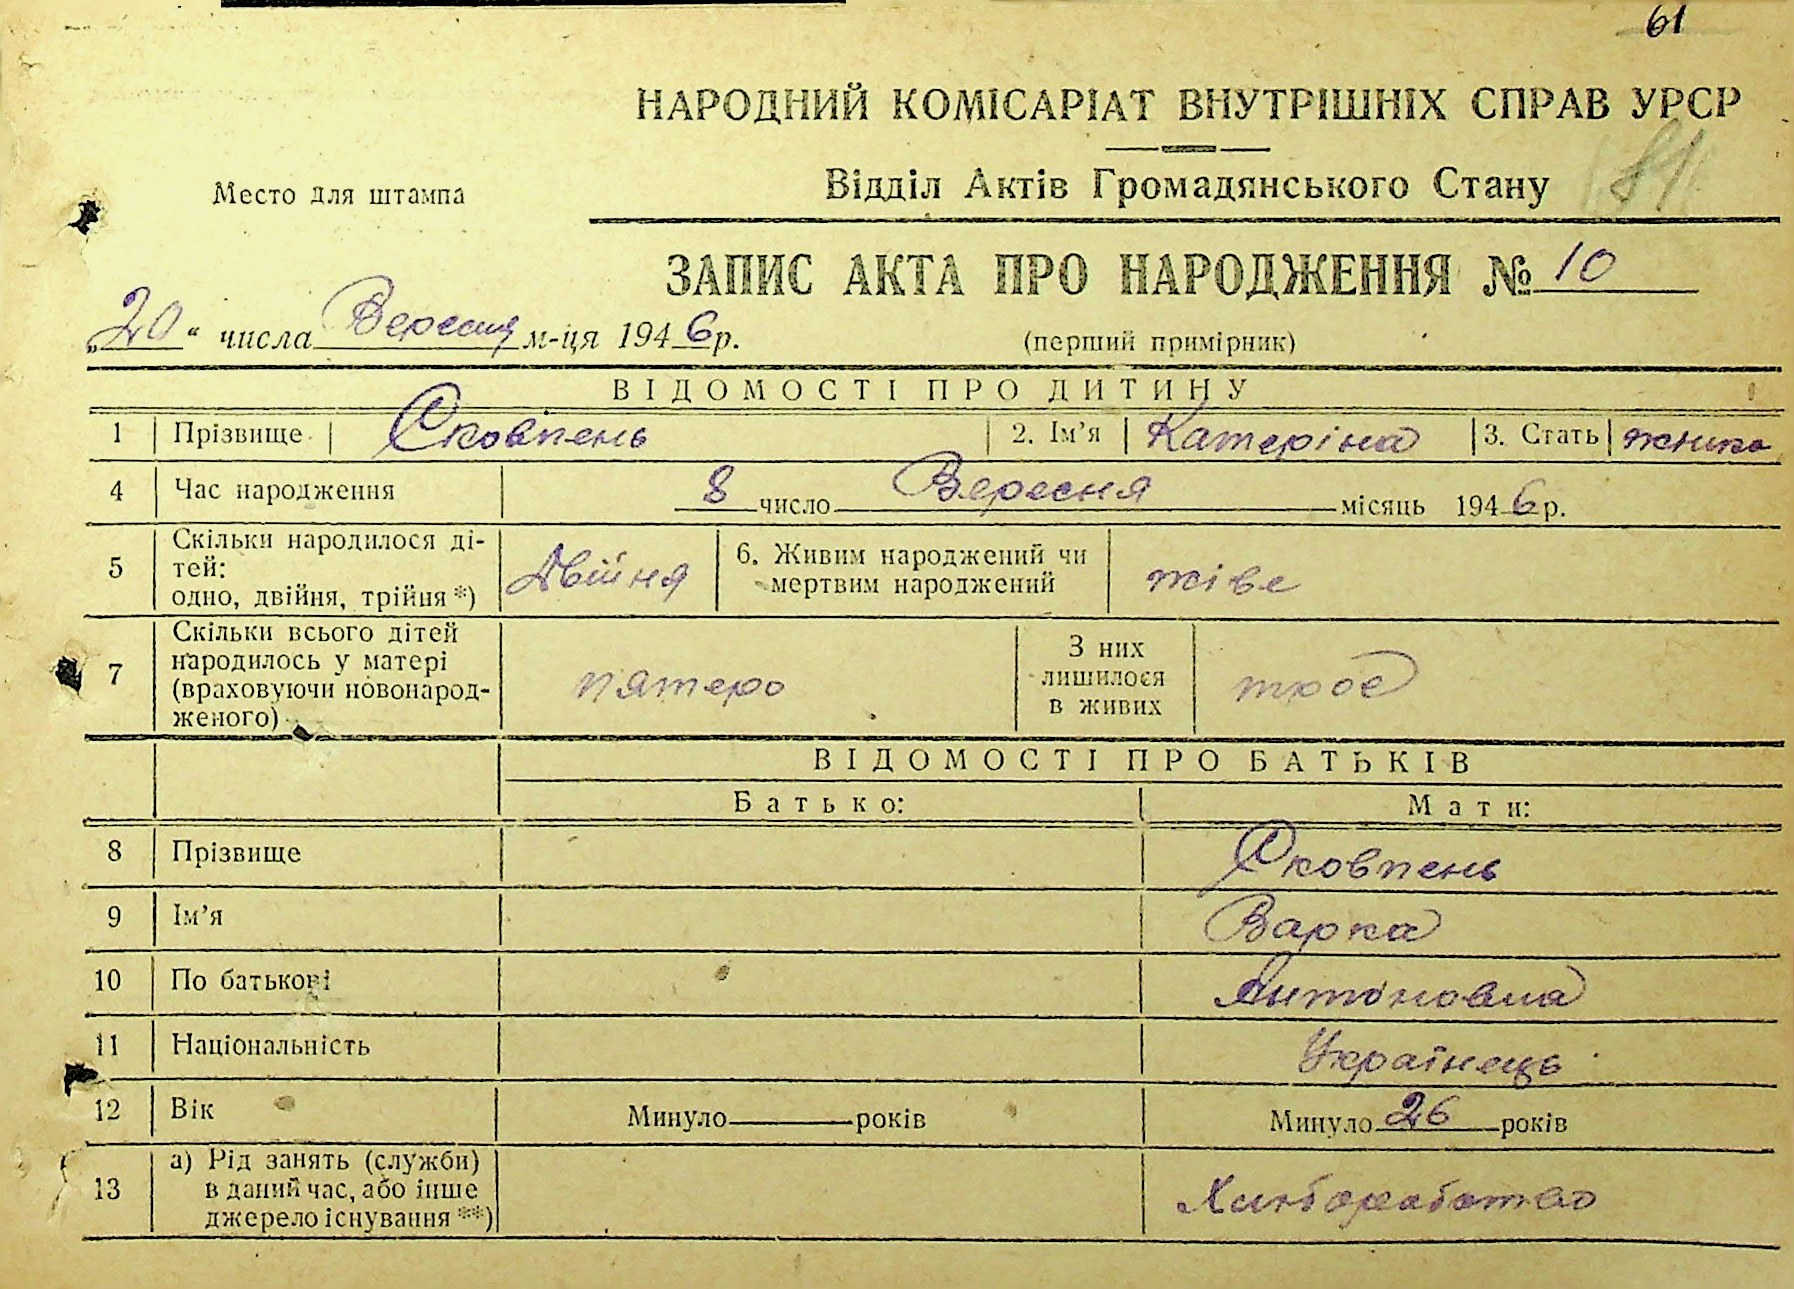 61
НАРОДНИЙ КОМІСАРІАТ ВНУТРІШНІХ СПРАВ УРСР
81
Место для штампа
Відділ Актів Громадянського Стану
ЗАПИС АКТА ПРО НАРОДЖЕННЯ № 10
„20“ числа Вересня м-ця 1946 р.
(перший примірник)
ВІДОМОСТІ ПРО ДИТИНУ
1 Прізвище Сковпень 2. Ім’я Катеріна 3. Стать
4 Час народження 8 число Вересня місяць 1946 р.
5 Скільки народилося ді-
тей:
одно, двійня, трійня *) Двійня 6. Живим народжений чи
мертвим народжений живе
7 Скільки всього дітей
народилось у матері
(враховуючи новонарод-
женого) пятеро З них
лишилося
в живих троє
ВІДОМОСТІ ПРО БАТЬКІВ
Батько: Мати:
8 Прізвище Сковпень
9 Ім’я Варка
10 По батькові Антоновна
11 Національність Українець
12 Вік Минуло років Минуло 26 років
13 а) Рід занять (служби)
в даний час, або інше
джерело існування **)